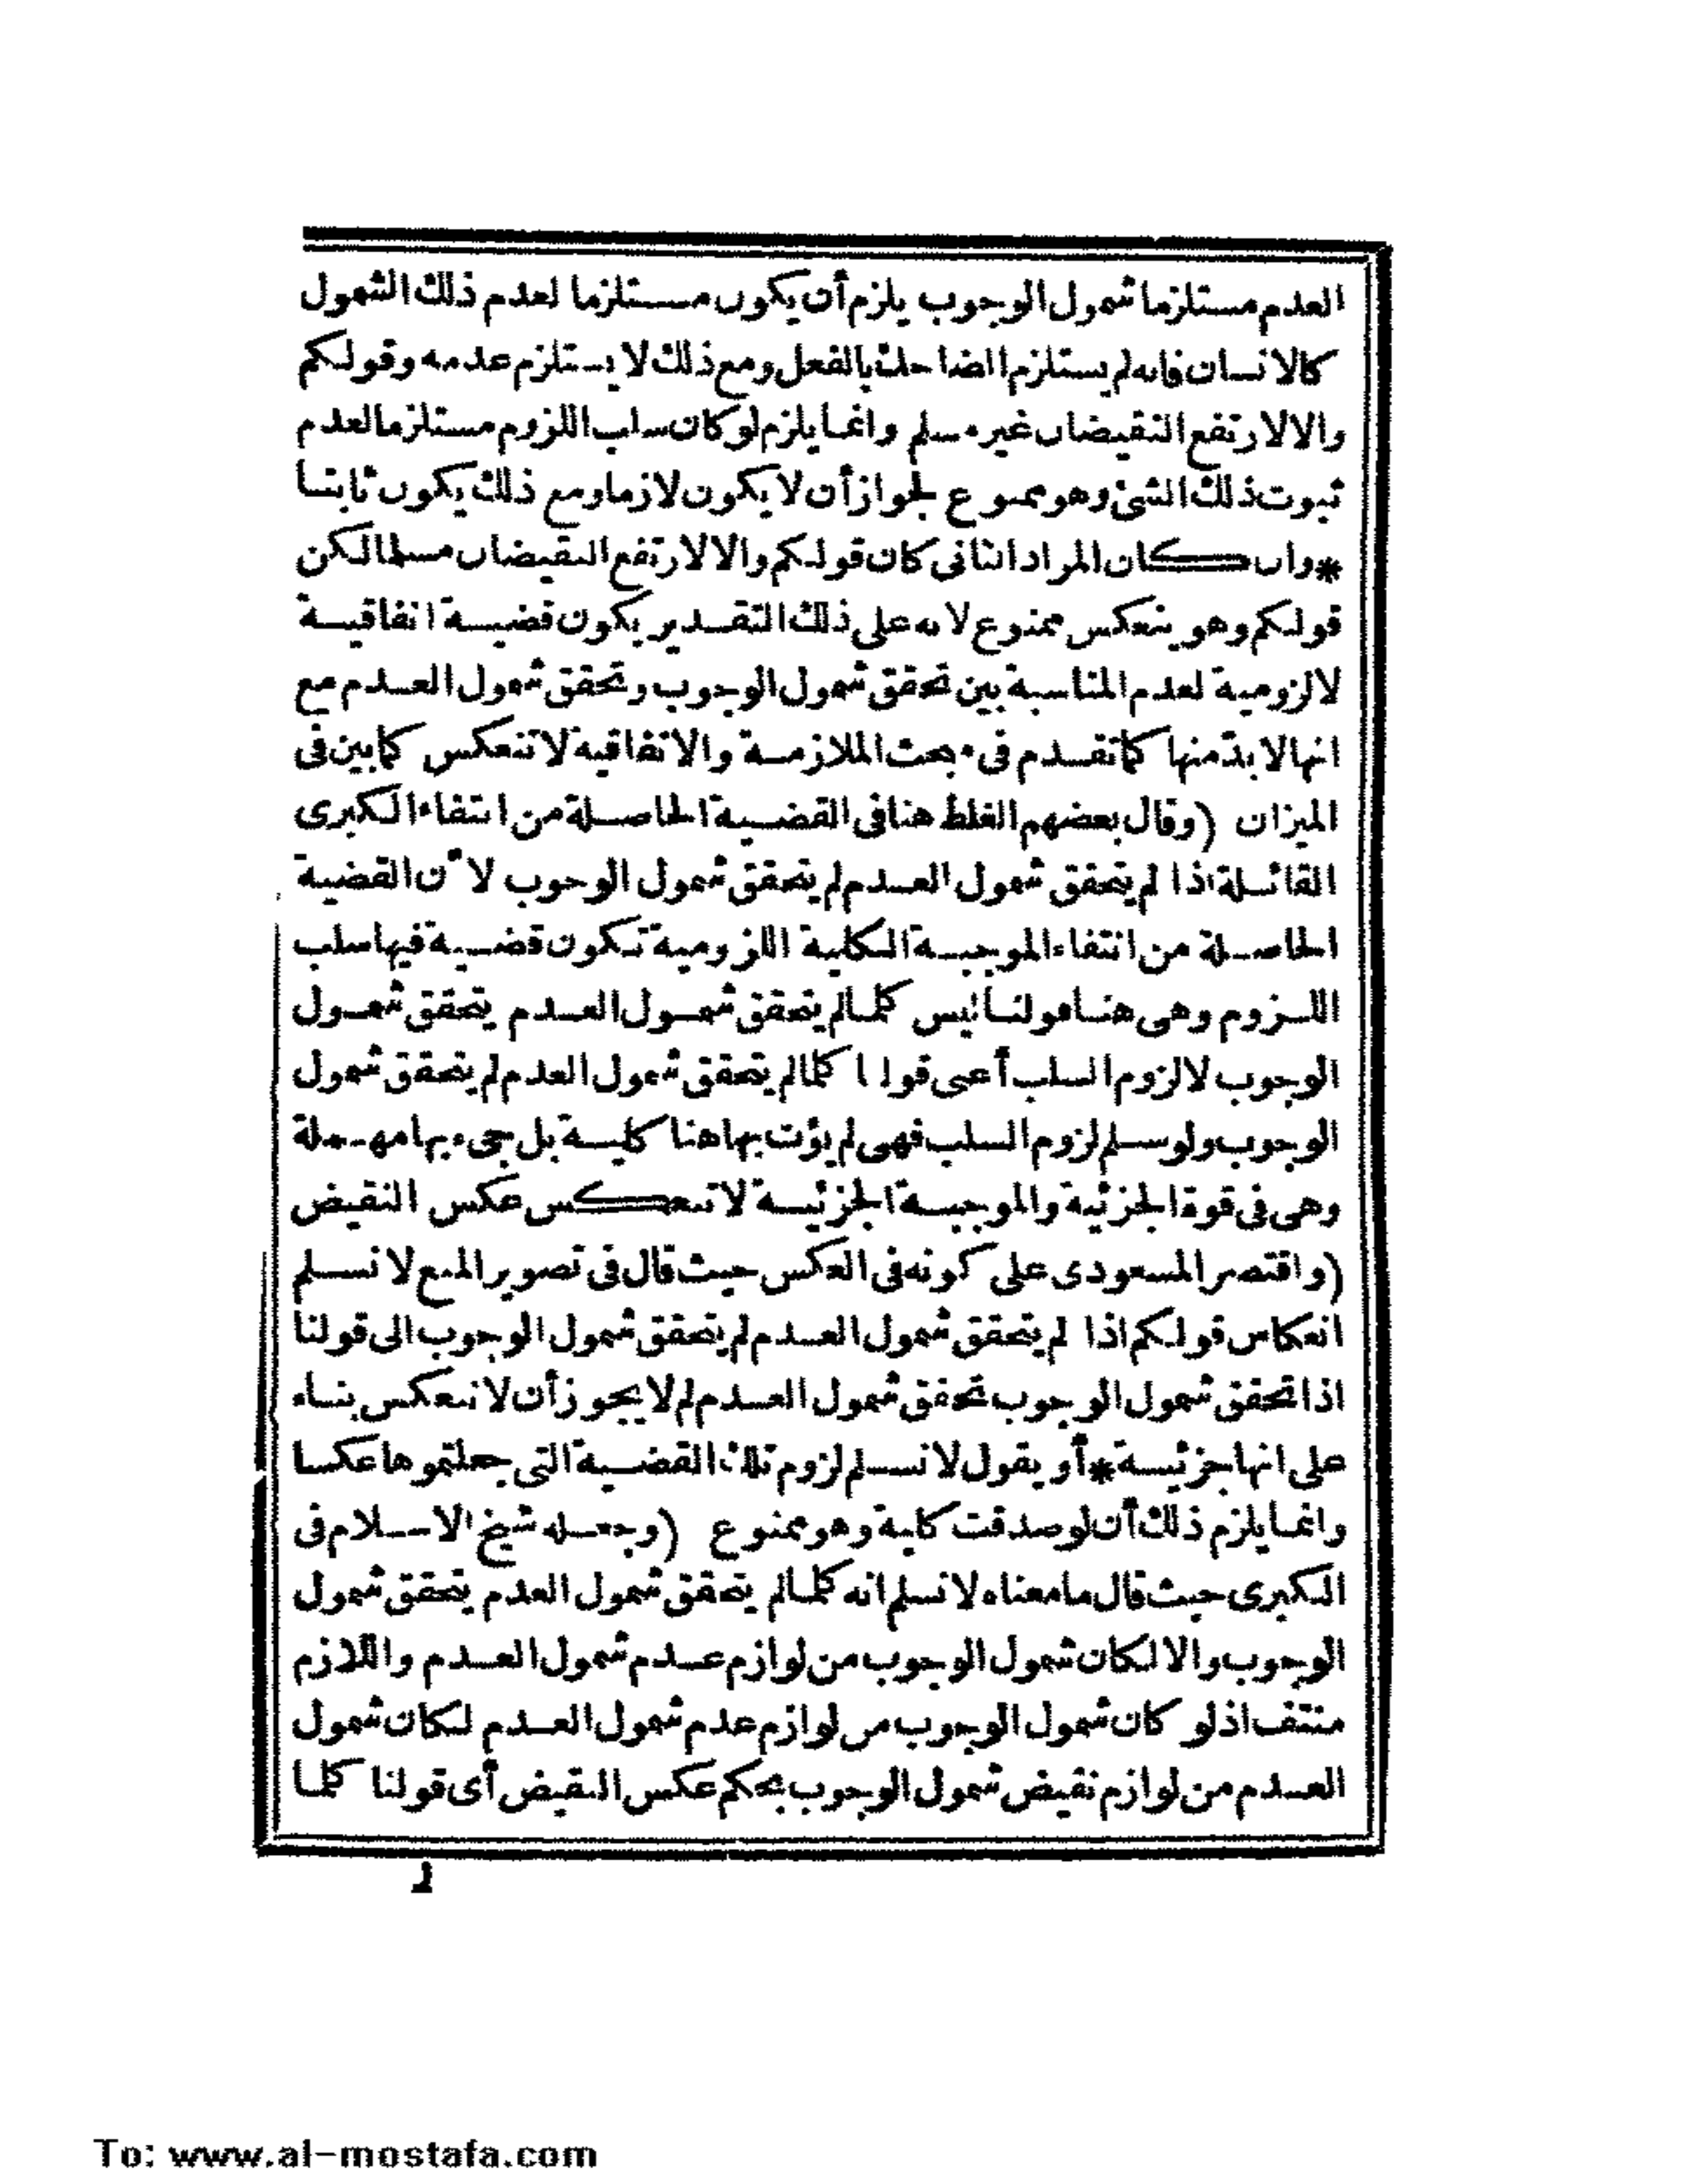 العدم مستلزما شمول الوجوب يلزم أن يكون مستلزما لعدم ذلك الشمول
كالانسان فانه لم يستلزم الضاحك بالفعل ومع ذلك لا يستلزم عدمه وقولكم
والا لارتفع النقيضان غير مسلم وانما يلزم لو كان سلب اللزوم مستلزما لعدم
ثبوت ذلك الشئ وهو ممنوع لجواز أن لا يكون لازما ومع ذلك يكون ثابتا
*وان كان المراد الثانى كان قولكم والا لارتفع النقيضان مسلما لكن
قولكم وهو ينعكس ممنوع لانه على ذلك التقدير يكون قضية اتفاقية
لالزومية لعدم المناسبة بين تحقق شمول الوجوب وتحقق شمول العدم مع
انها لا بدّ منها كما تقدم فى مبحث الملازمة والاتفاقية لا تنعكس كما بين فى
الميزان (وقال بعضهم الغلط هنا فى القضية الحاصلة من انتفاء الكبرى
القائلة اذا لم يتحقق شمول العدم لم يتحقق شمول الوجوب لأن القضية
الحاصلة من انتفاء الموجبة الكلية اللزومية تكون قضية فيها سلب
اللزوم وهى هنا قولنا ليس كلما لم يتحقق شمول العدم يتحقق شمول
الوجوب لا لزوم السلب أعنى قولنا كلما لم يتحقق شمول العدم لم يتحقق شمول
الوجوب ولو سلم لزوم السلب فهى لم يؤت بها هنا كلية بل جىء بها مهملة
وهى فى قوة الجزئية والموجبة الجزئية لا تنعكس عكس النقيض
(واقتصر المسعودى على كونه فى العكس حيث قال فى تصوير المنع لا نسلم
انعكاس قولكم اذا لم يتحقق شمول العدم لم يتحقق شمول الوجوب الى قولنا
اذا تحقق شمول الوجوب تحقق شمول العدم لم لا يجوز أن لا تنعكس بناء
على انها جزئية * أو يقول لا نسلم لزوم تلك القضية التى جعلتموها عكسا
وانما يلزم ذلك أن لو صدقت كلية وهو ممنوع (وجعله شيخ الاسلام فى
الكبرى حيث قال ما معناه لا نسلم انه كلما لم يتحقق شمول العدم يتحقق شمول
الوجوب والا لكان شمول الوجوب من لوازم عدم شمول العدم واللازم
منتف اذ لو كان شمول الوجوب من لوازم عدم شمول العدم لكان شمول
العدم من لوازم نقيض شمول الوجوب بحكم عكس النقيض أى قولنا كلما
To: www.al-mostafa.com